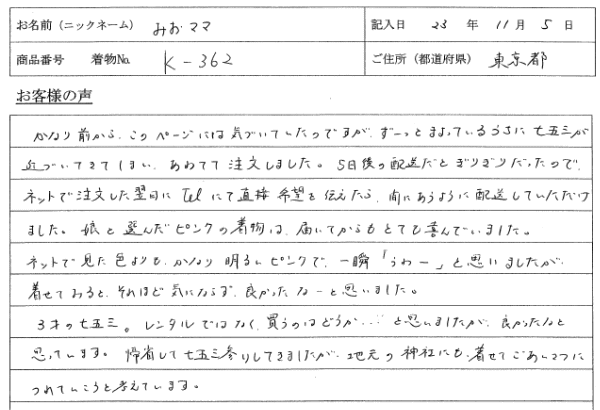 お名前（ニックネーム） みおママ 記入日 23 年 11 月 5 日
商品番号 着物No. K-362 ご住所（都道府県） 東京都
お客様の声
かなり前から、このページには気づいていたのですが、ずーっとまよっているうちに七五三が
近づいてきてしまい、あわてて注文しました。5日後の配送だとぎりぎりだったので、
ネットで注文した翌日にTelにて直接希望を伝えたら、間にあうように配送していただけ
ました。娘と選んだピンクの着物は、届いてからもとても喜んでいました。
ネットで見た色よりも、かなり明るいピンクで、一瞬「うわー」と思いましたが
着せてみると、それほど気にならず、良かったなーと思いました。
3才の七五三。レンタルではなく、買うのはどうか…と思いましたが、良かったなと
思っています。帰省して七五三参りしてきましたが、地元の神社にも、着せてごあいさつに
つれていこうと考えています。